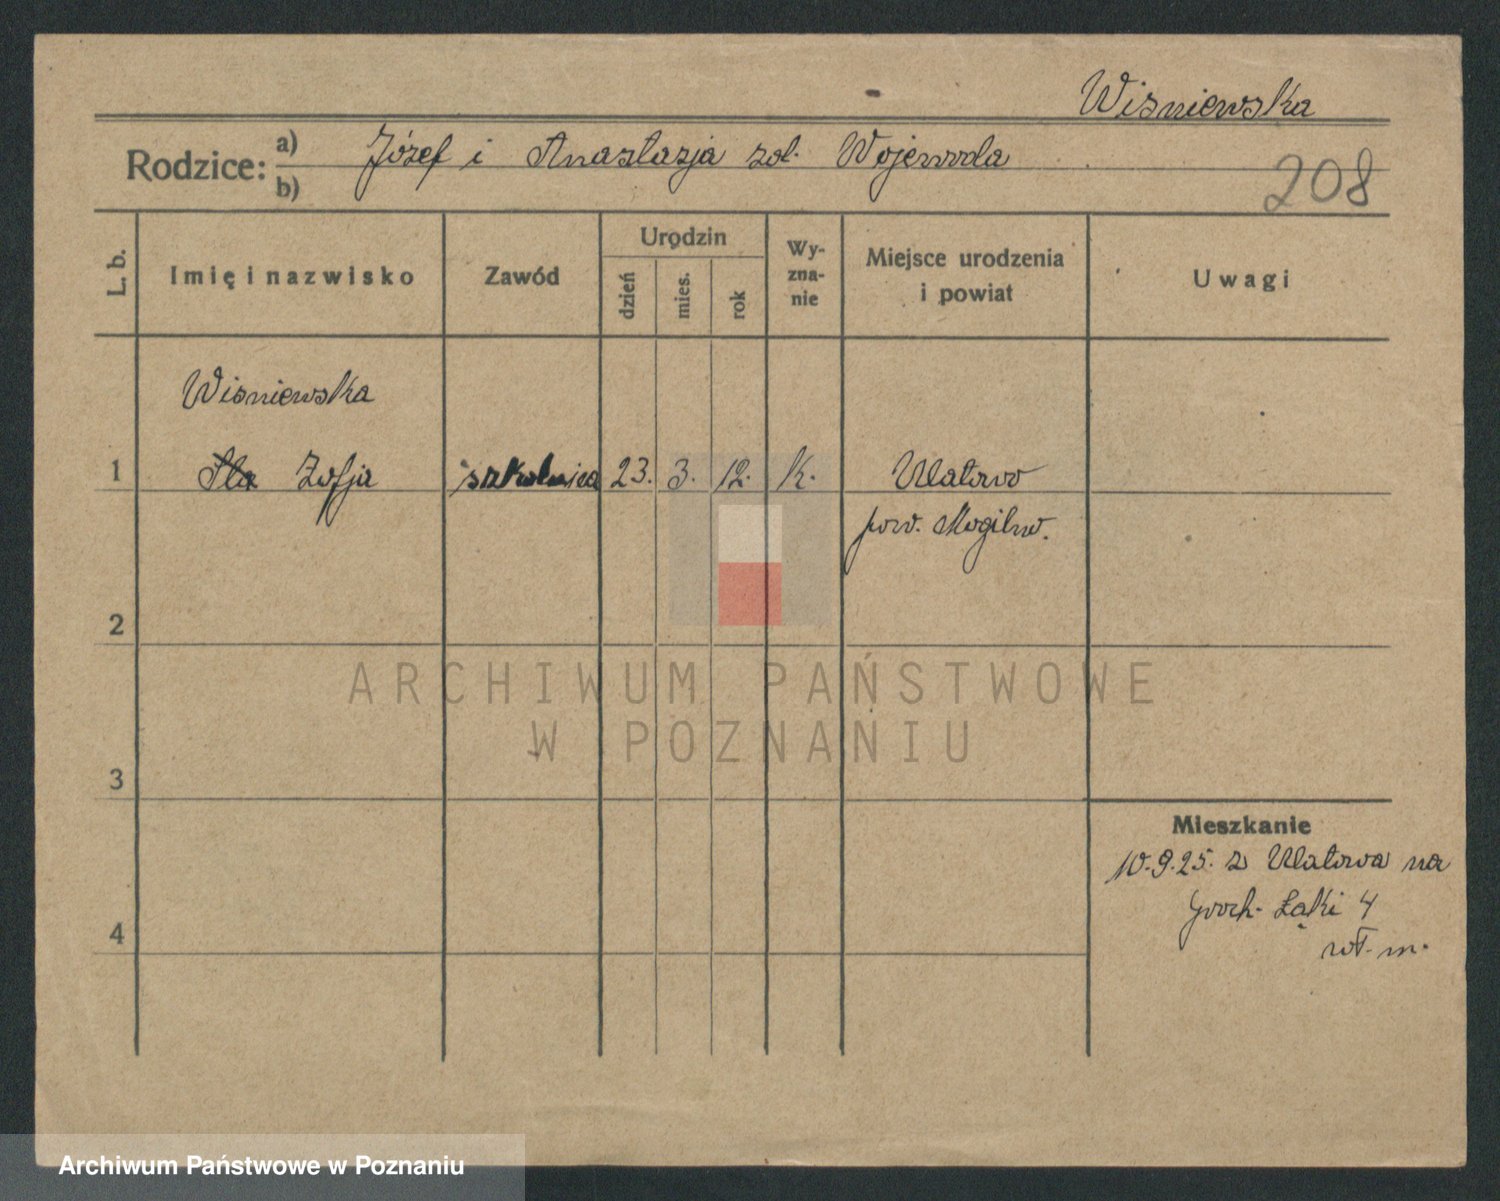 Wiśniewska
Rodzice: a) Józef i Anastazja zd. Wojewoda
b)
208
L. b.
Imię i nazwisko
Zawód
Urodzin
dzień
mies.
rok
Wy-
zna-
nie
Miejsce urodzenia
i powiat
Uwagi
Wiśniewska
1 Zofja
23. 3. 12. k.
pow. Mogilno.
2
ARCHIWUM PAŃSTWOWE
W POZNANIU
3
Mieszkanie
10.9.25. z na
Groch. Łąki 4
4
Archiwum Państwowe w Poznaniu